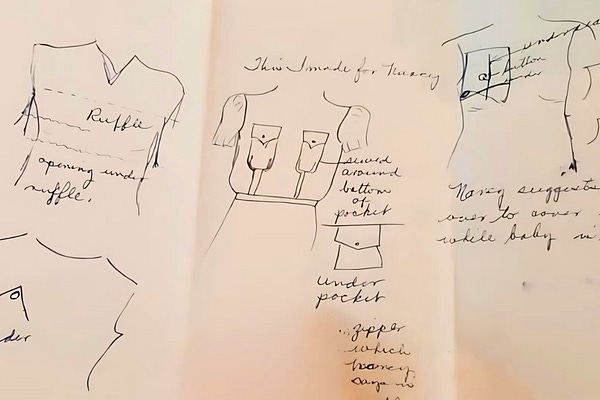 Ruffle
opening under
ruffle.
This I made for Nancy
sewed
around
bottom
of
pocket
under
pocket
zipper
which
Nancy
says is
button
under
Nancy suggests
over to cover
while baby